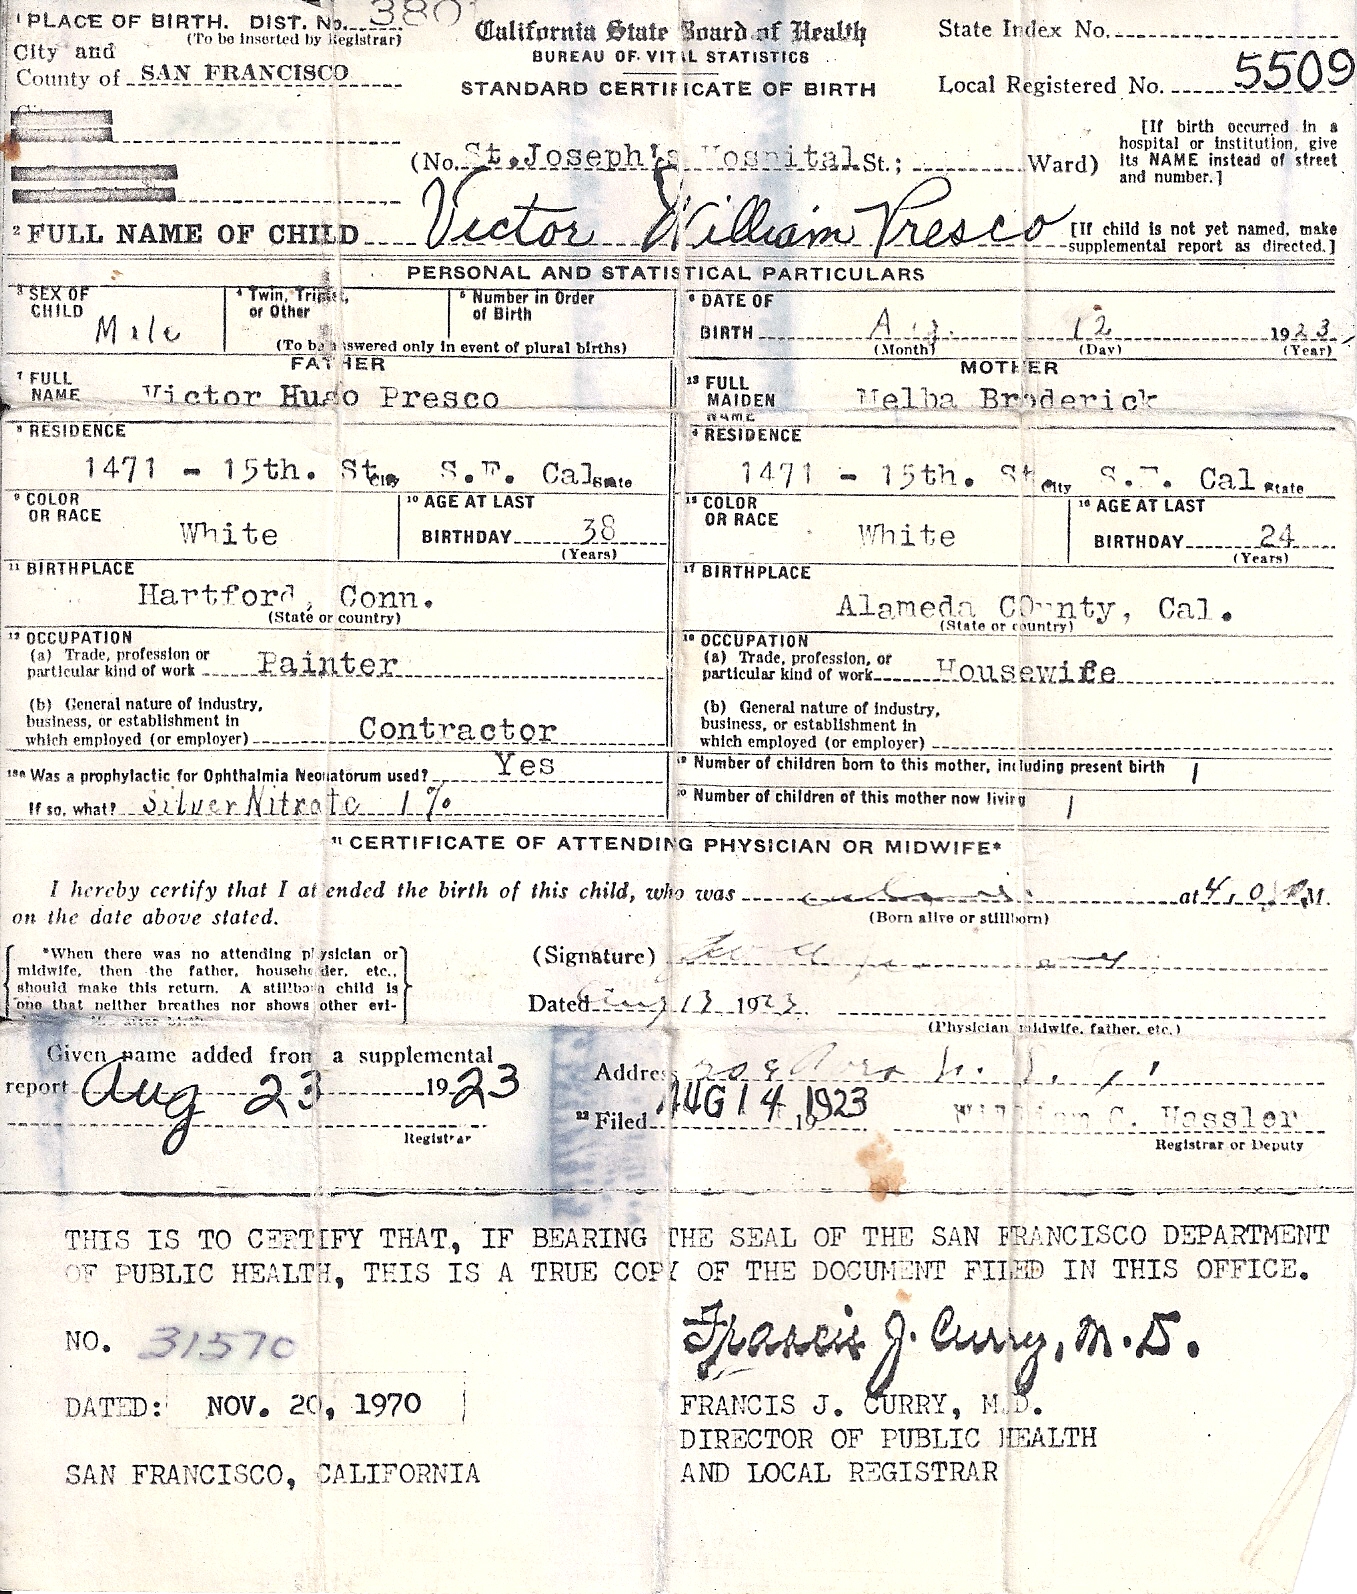 1 PLACE OF BIRTH. DIST. No. 3801
(To be inserted by Registrar)
City and
County of SAN FRANCISCO
California State Board of Health
BUREAU OF VITAL STATISTICS
STANDARD CERTIFICATE OF BIRTH
State Index No.
Local Registered No. 5509
(No. St. Joseph's Hospital St.; Ward)
[If birth occurred in a
hospital or institution, give
its NAME instead of street
and number.]
2 FULL NAME OF CHILD Victor William Presco
[If child is not yet named, make
supplemental report as directed.]
PERSONAL AND STATISTICAL PARTICULARS
3 SEX OF
CHILD Male
4 Twin, Triplet,
or Other
5 Number in Order
of Birth
(To be answered only in event of plural births)
6 DATE OF
BIRTH Aug. 12 1923
(Month) (Day) (Year)
FATHER
7 FULL
NAME Victor Hugo Presco
8 RESIDENCE
1471 - 15th. St. City S.F. Cal State
9 COLOR
OR RACE White
10 AGE AT LAST
BIRTHDAY 38
(Years)
11 BIRTHPLACE
Hartford, Conn.
(State or country)
12 OCCUPATION
(a) Trade, profession or
particular kind of work Painter
(b) General nature of industry,
business, or establishment in
which employed (or employer) Contractor
MOTHER
13 FULL
MAIDEN Melba Broderick
NAME
RESIDENCE
1471 - 15th. St. City S.F. Cal State
15 COLOR
OR RACE White
16 AGE AT LAST
BIRTHDAY 24
(Years)
17 BIRTHPLACE
Alameda County, Cal.
(State or country)
18 OCCUPATION
(a) Trade, profession, or
particular kind of work Housewife
(b) General nature of industry,
business, or establishment in
which employed (or employer)
18a Was a prophylactic for Ophthalmia Neonatorum used? Yes
If so, what? Silver Nitrate 1%
19 Number of children born to this mother, including present birth 1
20 Number of children of this mother now living 1
21 CERTIFICATE OF ATTENDING PHYSICIAN OR MIDWIFE*
I hereby certify that I attended the birth of this child, who was at 4,0 M.
(Born alive or stillborn)
on the date above stated.
*When there was no attending physician or
midwife, then the father, householder, etc.,
should make this return. A stillborn child is
one that neither breathes nor shows other evi-
after birth
(Signature)
Dated Aug 13 1923
(Physician, midwife, father, etc.)
Given name added from a supplemental
report Aug 23 1923
Registrar
Address
22 Filed AUG 14, 1923 19
William C. Hassler
Registrar or Deputy
THIS IS TO CERTIFY THAT, IF BEARING THE SEAL OF THE SAN FRANCISCO DEPARTMENT
OF PUBLIC HEALTH, THIS IS A TRUE COPY OF THE DOCUMENT FILED IN THIS OFFICE.
NO. 31570
Francis J. Curry, M.D.
DATED: NOV. 20, 1970
FRANCIS J. CURRY, M.D.
DIRECTOR OF PUBLIC HEALTH
SAN FRANCISCO, CALIFORNIA
AND LOCAL REGISTRAR